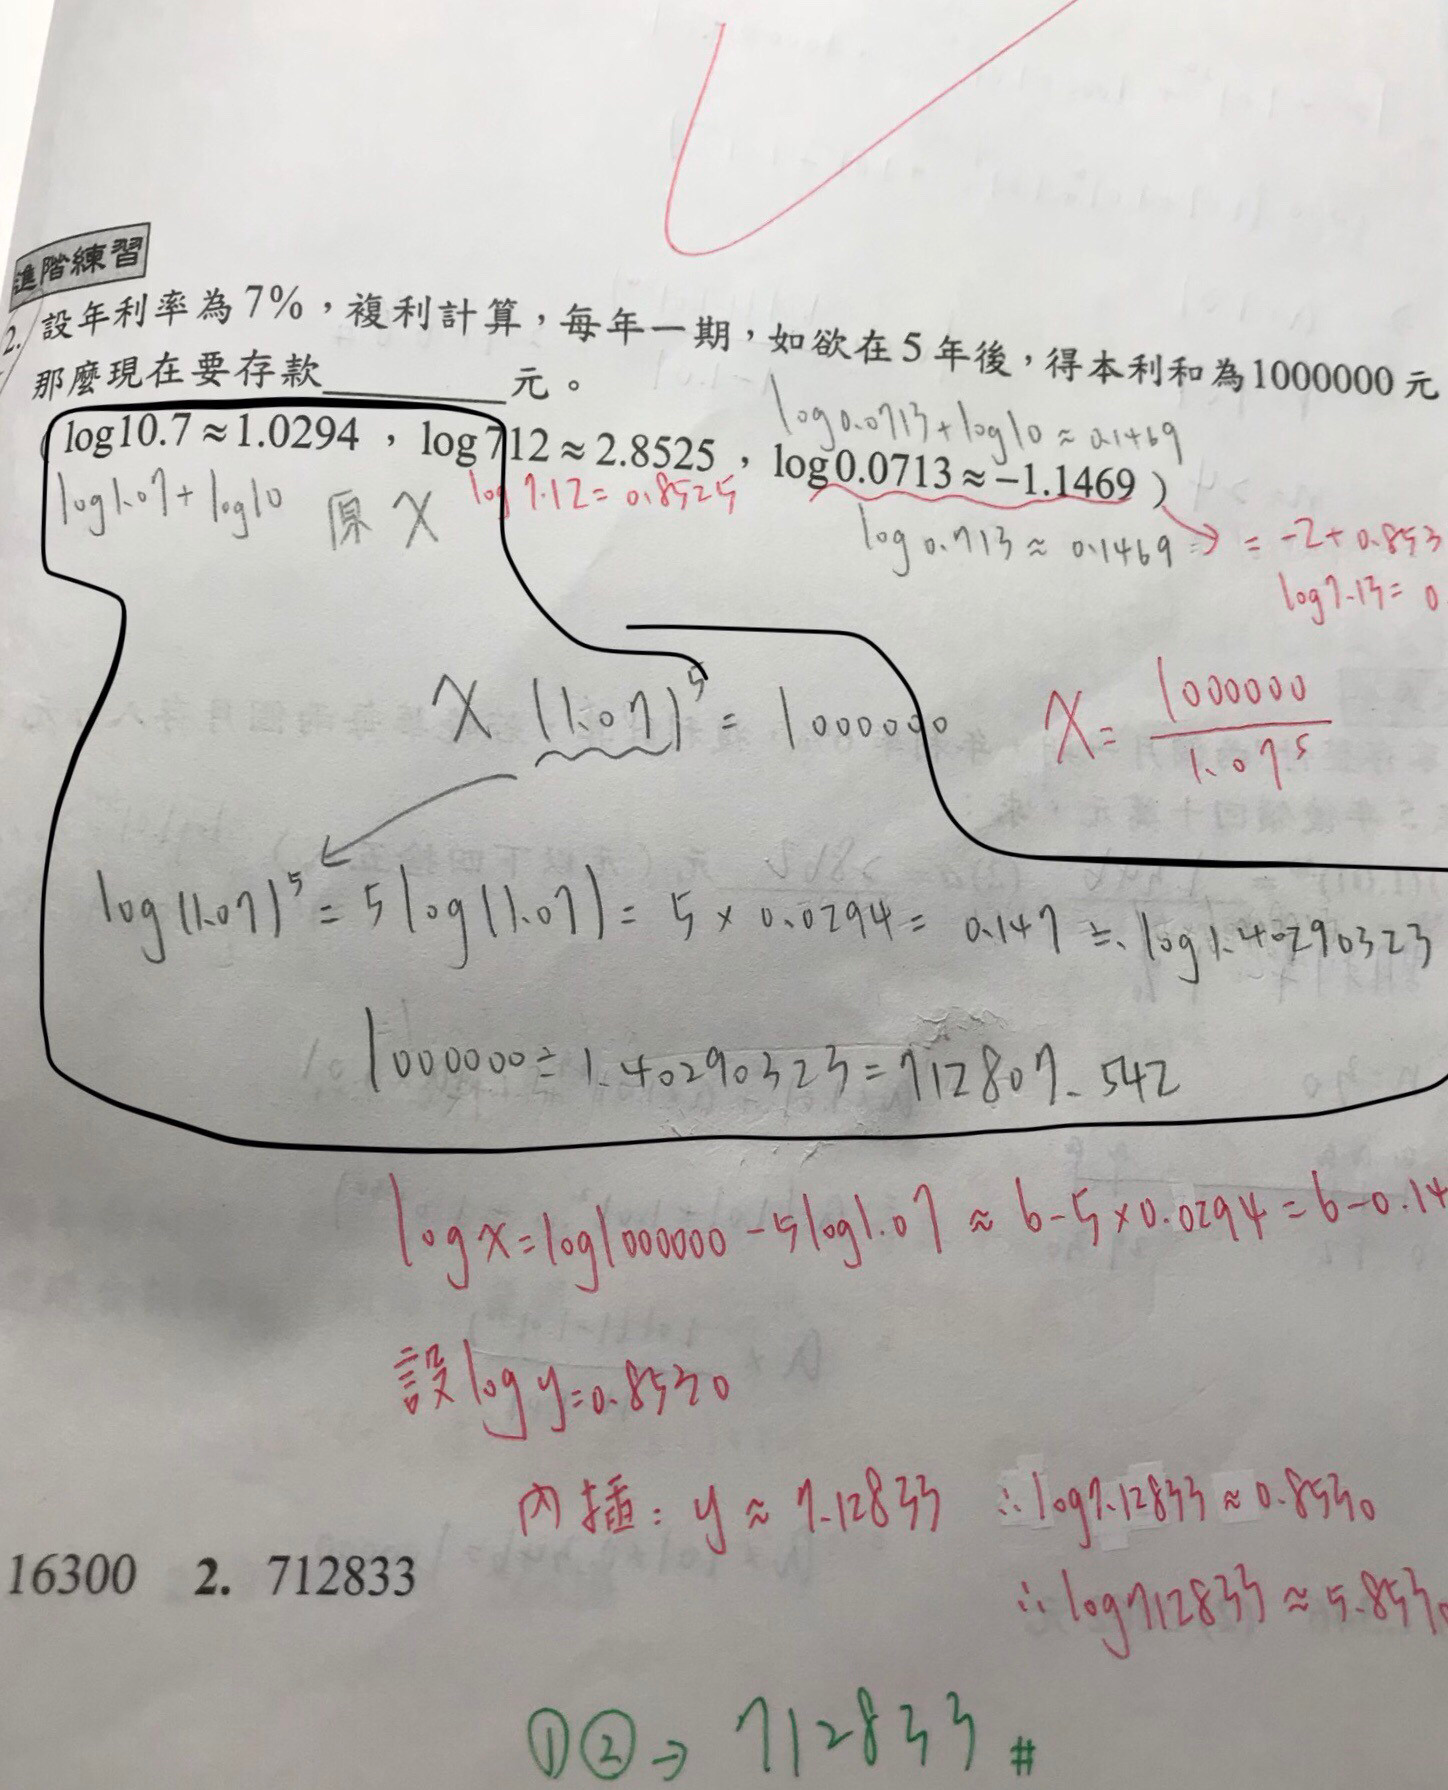 進階練習
2. 設年利率為7%，複利計算，每年一期，如欲在5年後，得本利和為1000000元
那麼現在要存款________元。
(log10.7≈1.0294，log712≈2.8525，log0.0713≈−1.1469)
log0.0713+log10≈0.1469
log1.07+log10 原 X
log7.12=0.8525
log0.713≈0.1469
=-2+0.853
log7.13=0
X(1.07)^5=1000000
X=1000000/1.07^5
log(1.07)^5=5log(1.07)=5×0.0294=0.147≒log1.40290323
1000000÷1.40290323=712807.542
logx=log1000000-5log1.07≈6-5×0.0294=6-0.14
設logy=0.8530
內插：y≈7.12833 ∴log7.12833≈0.8530
∴log712833≈5.8530
16300 2. 712833
①②→712833#